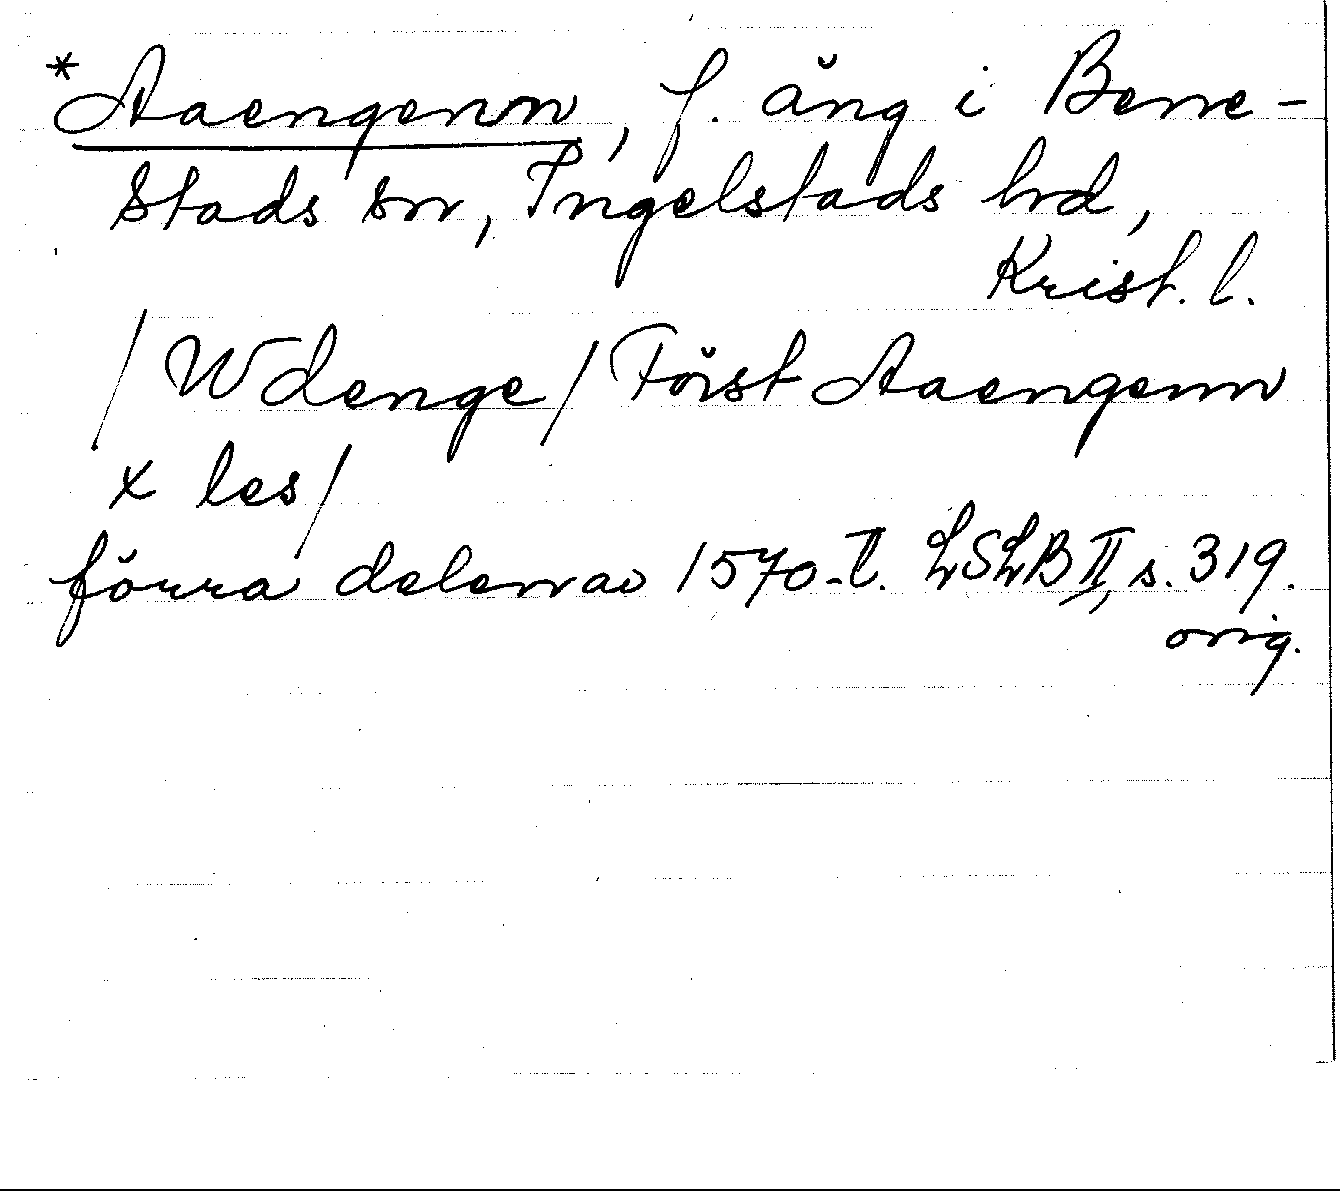 *Aaengenn, f. äng i Benne-
stads sn, Ingelstads hd,
Krist. l.
/Wdenge/Först Aaengenn
x les/
förra delen av 1570-t. LSLB II, s. 319.
orig.